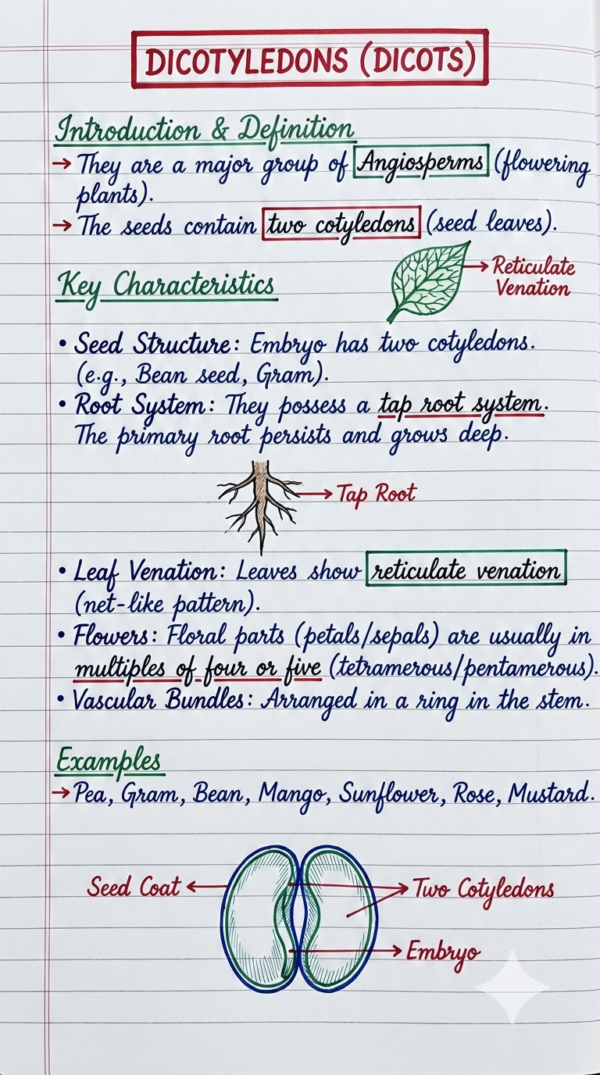 DICOTYLEDONS (DICOTS)
Introduction & Definition
→ They are a major group of Angiosperms (flowering
plants).
→ The seeds contain two cotyledons (seed leaves).
Reticulate
Venation
Key Characteristics
• Seed Structure: Embryo has two cotyledons.
(e.g., Bean seed, Gram).
• Root System: They possess a tap root system.
The primary root persists and grows deep.
Tap Root
• Leaf Venation: Leaves show reticulate venation
(net-like pattern).
• Flowers: Floral parts (petals/sepals) are usually in
multiples of four or five (tetramerous/pentamerous).
• Vascular Bundles: Arranged in a ring in the stem.
Examples
→ Pea, Gram, Bean, Mango, Sunflower, Rose, Mustard.
Seed Coat
Two Cotyledons
Embryo